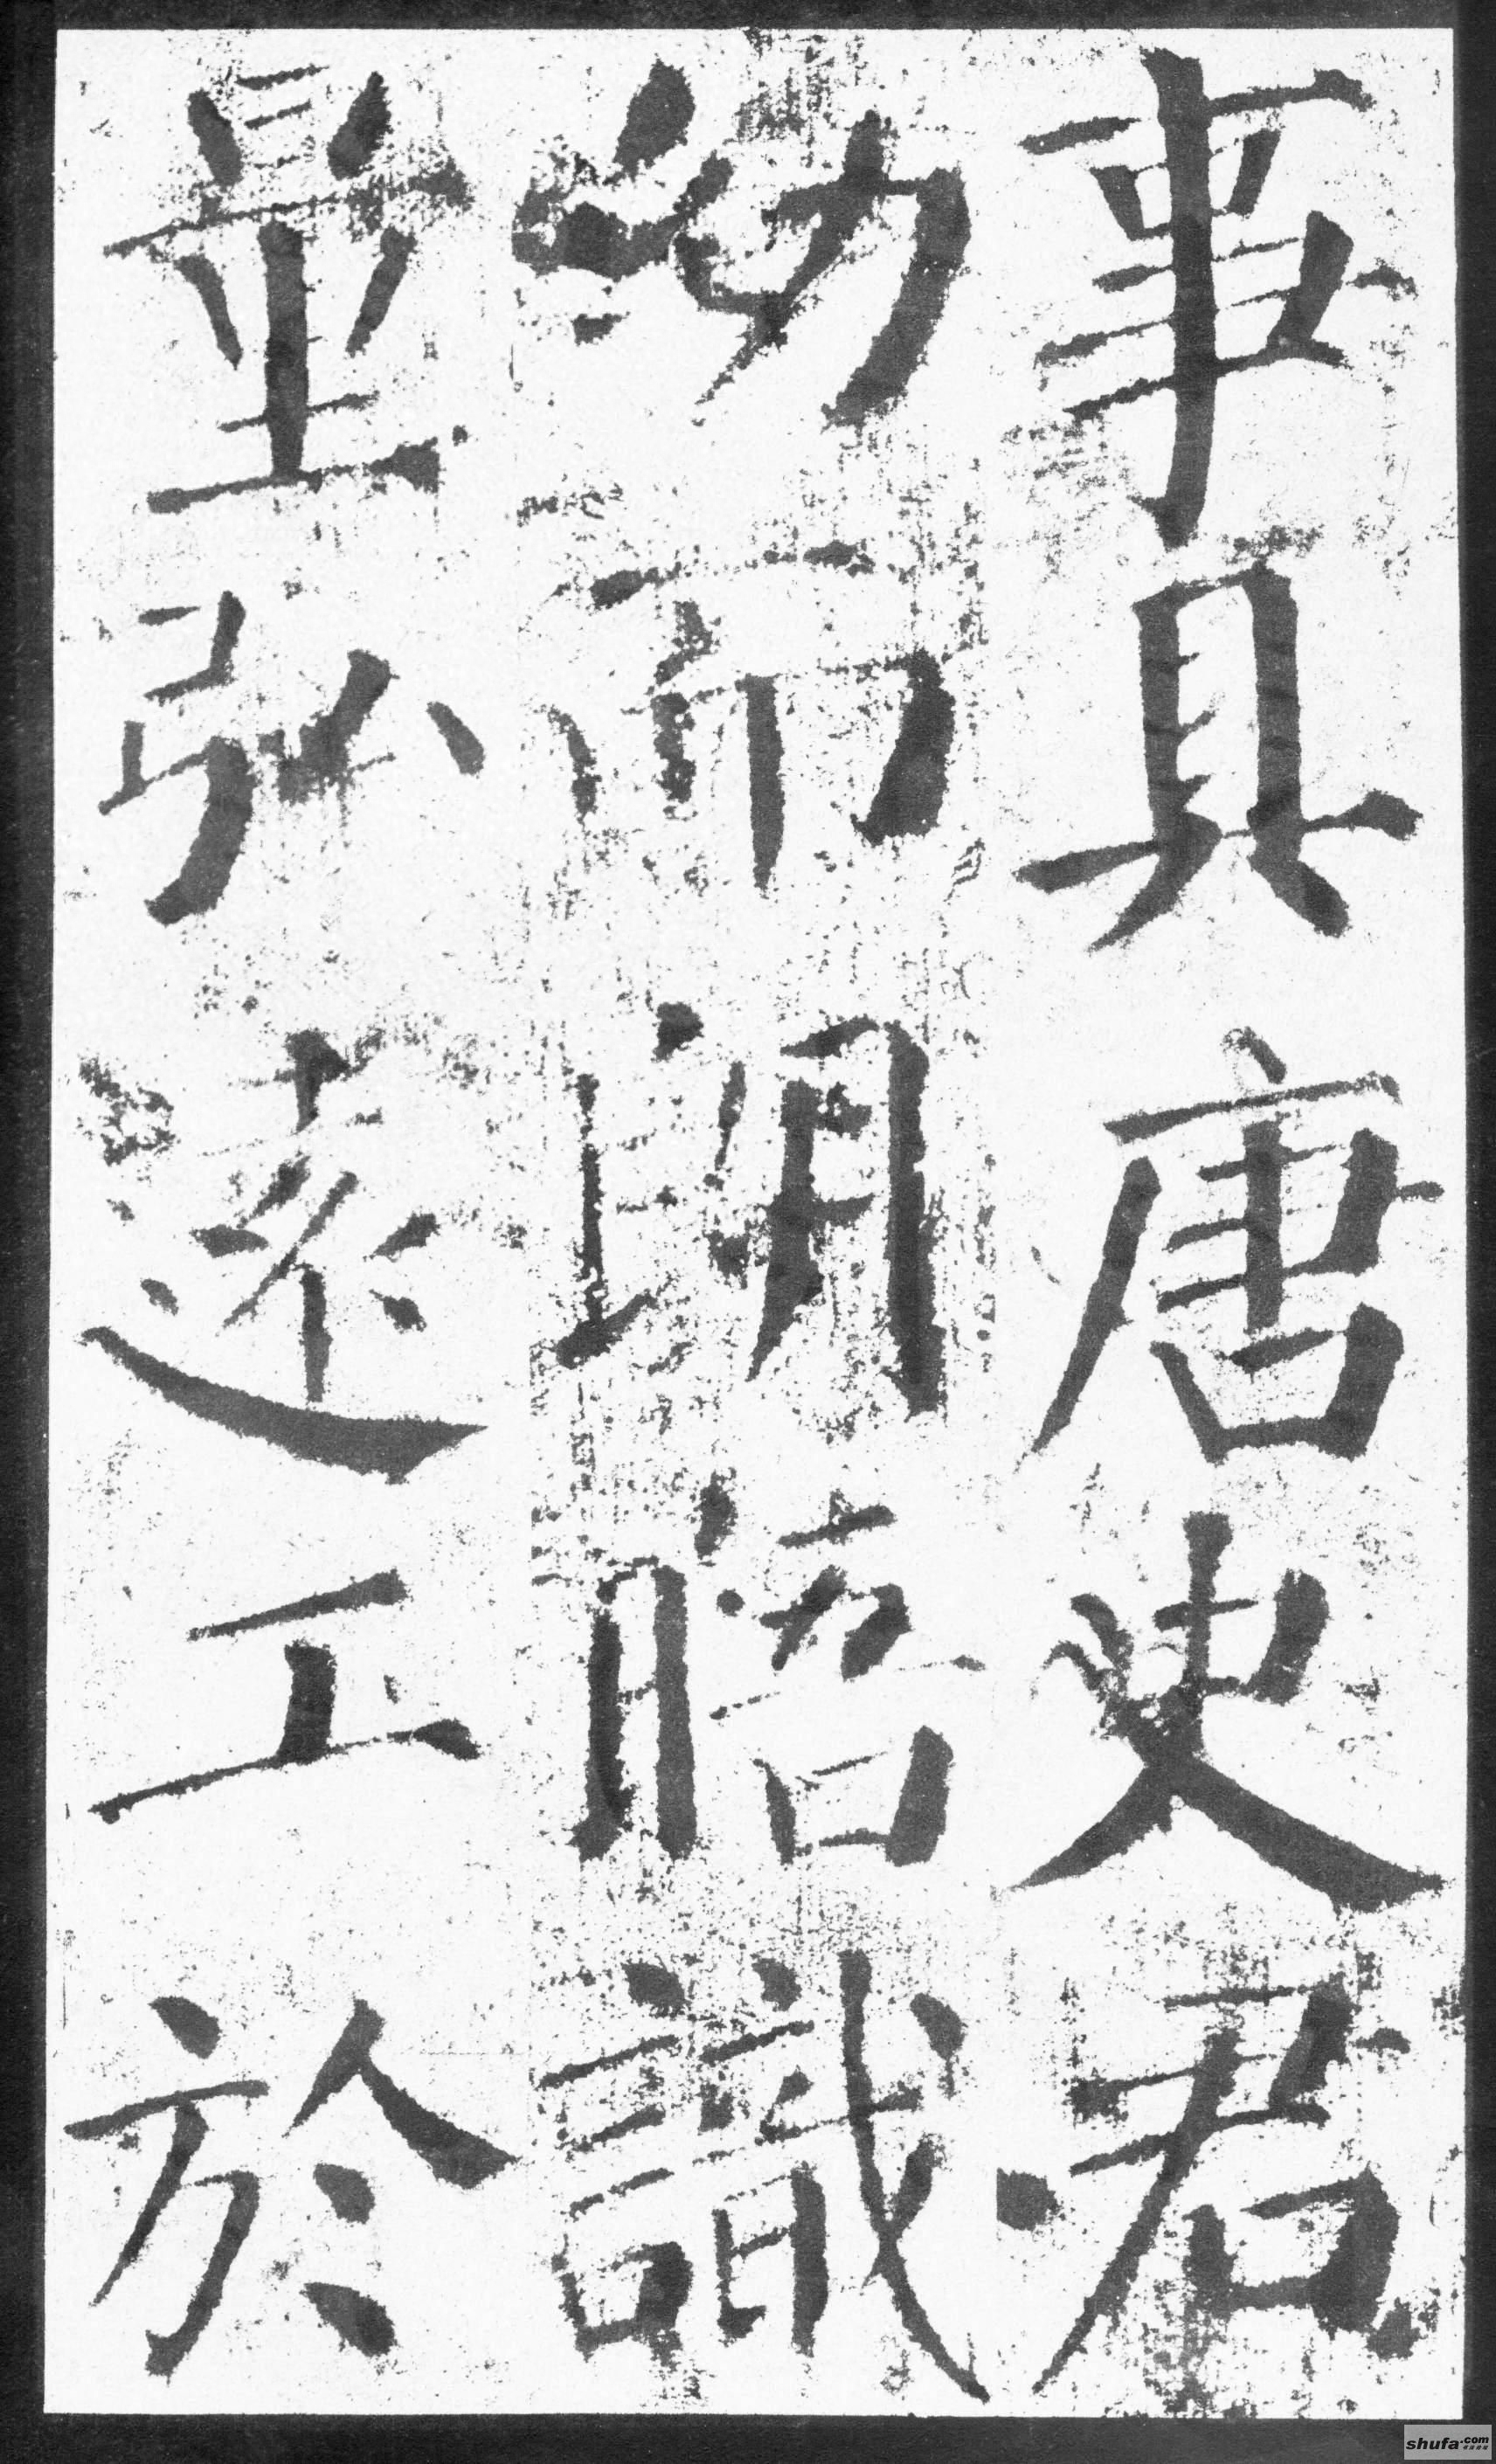 事具唐史君
幼而朗晤識
量弘遠工於
shufa.com